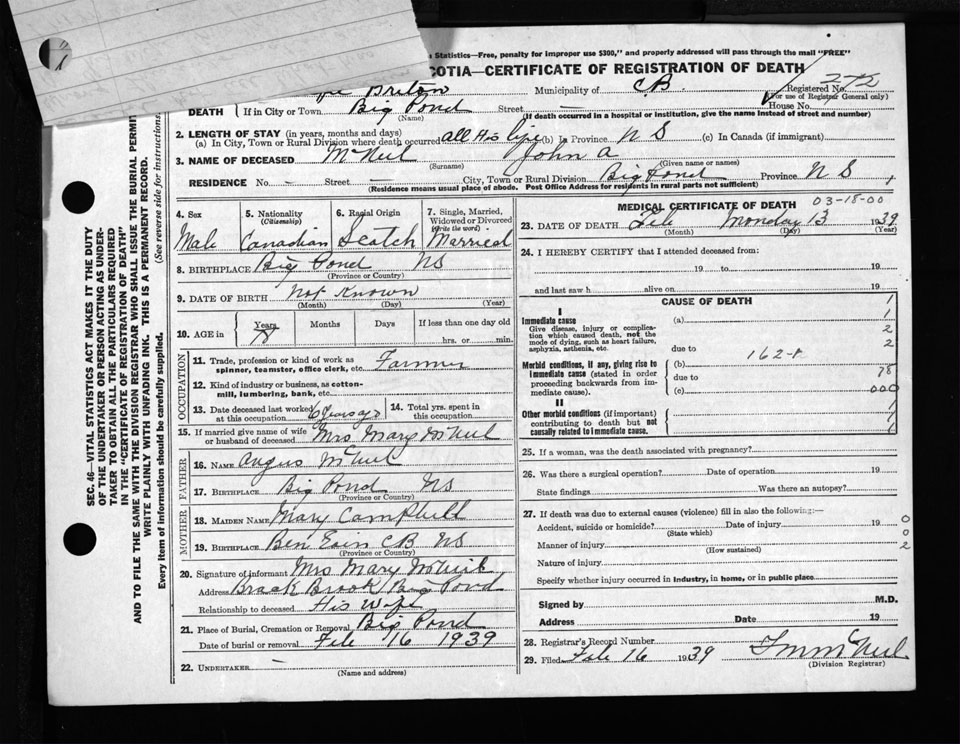 Statistics—Free, penalty for improper use $300," and properly addressed will pass through the mail "FREE"
COTIA—CERTIFICATE OF REGISTRATION OF DEATH
Breton Municipality of C.B. Registered No. 272
(For use of Registrar General only)
DEATH If in City or Town Big Pond Street House No.
(Name) (If death occurred in a hospital or institution, give the name instead of street and number)
2. LENGTH OF STAY (in years, months and days)
(a) In City, Town or Rural Division where death occurred all His life (b) In Province N S (c) In Canada (if immigrant)
3. NAME OF DECEASED McNeil John A
(Surname) (Given name or names)
RESIDENCE No. – Street – City, Town or Rural Division Big Pond Province N S
(Residence means usual place of abode. Post Office Address for residents in rural parts not sufficient)
4. Sex 5. Nationality (Citizenship) 6. Racial Origin 7. Single, Married, Widowed or Divorced (Write the word)
Male Canadian Scotch Married
8. BIRTHPLACE Big Pond NS
(Province or Country)
9. DATE OF BIRTH Not Known
(Month) (Day) (Year)
10. AGE in Years Months Days If less than one day old
78 hrs. or min.
OCCUPATION
11. Trade, profession or kind of work as spinner, teamster, office clerk, etc. Farmer
12. Kind of industry or business, as cotton-mill, lumbering, bank, etc.
13. Date deceased last worked at this occupation 6 years ago 14. Total yrs. spent in this occupation
15. If married give name of wife or husband of deceased Mrs Mary McNeil
FATHER
16. NAME Angus McNeil
17. BIRTHPLACE Big Pond NS
(Province or Country)
MOTHER
18. MAIDEN NAME Mary Campbell
19. BIRTHPLACE Ben Eoin CB NS
(Province or Country)
20. Signature of informant Mrs Mary McNeil
Address Brack Brook Big Pond
Relationship to deceased His Wife
21. Place of Burial, Cremation or Removal Big Pond
Date of burial or removal Feb 16 1939
22. UNDERTAKER –
(Name and address)
MEDICAL CERTIFICATE OF DEATH 03-18-00
23. DATE OF DEATH Feb Monday 13 1939
(Month) (Day) (Year)
24. I HEREBY CERTIFY that I attended deceased from:
19 to 19
and last saw h alive on 19
CAUSE OF DEATH
I
Immediate cause (a) 1
Give disease, injury or complication which caused death, not the mode of dying, such as heart failure, asphyxia, asthenia, etc. 1
2
2
due to 162-
Morbid conditions, if any, giving rise to immediate cause (stated in order proceeding backwards from immediate cause). (b) 78
due to
(c) 000
II
Other morbid conditions (if important) contributing to death but not causally related to immediate cause. 1
1
1
25. If a woman, was the death associated with pregnancy?
26. Was there a surgical operation? Date of operation 19
State findings Was there an autopsy?
27. If death was due to external causes (violence) fill in also the following:—
Accident, suicide or homicide? Date of injury 19 0
(State which) 0
Manner of injury 2
(How sustained)
Nature of injury
Specify whether injury occurred in industry, in home, or in public place
Signed by M.D.
Address Date 19
28. Registrar's Record Number
29. Filed Feb 16 1939 McNeil
(Division Registrar)
SEC. 46—VITAL STATISTICS ACT MAKES IT THE DUTY
OF THE UNDERTAKER OR PERSON ACTING AS UNDER-
TAKER TO OBTAIN ALL THE PARTICULARS REQUIRED
IN THE "CERTIFICATE OF REGISTRATION OF DEATH"
AND TO FILE THE SAME WITH THE DIVISION REGISTRAR WHO SHALL ISSUE THE BURIAL PERMIT
WRITE PLAINLY WITH UNFADING INK. THIS IS A PERMANENT RECORD.
Every item of information should be carefully supplied. (See reverse side for instructions.)